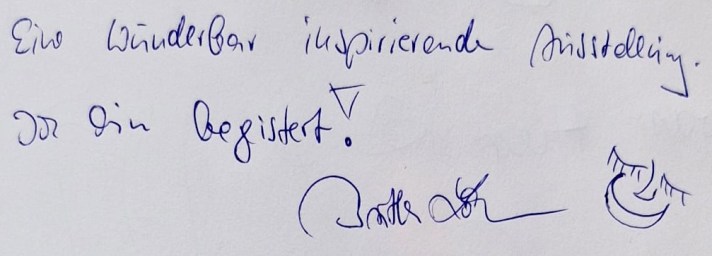 Eine wunderbar inspirierende Ausstellung.
Ich bin begistert!